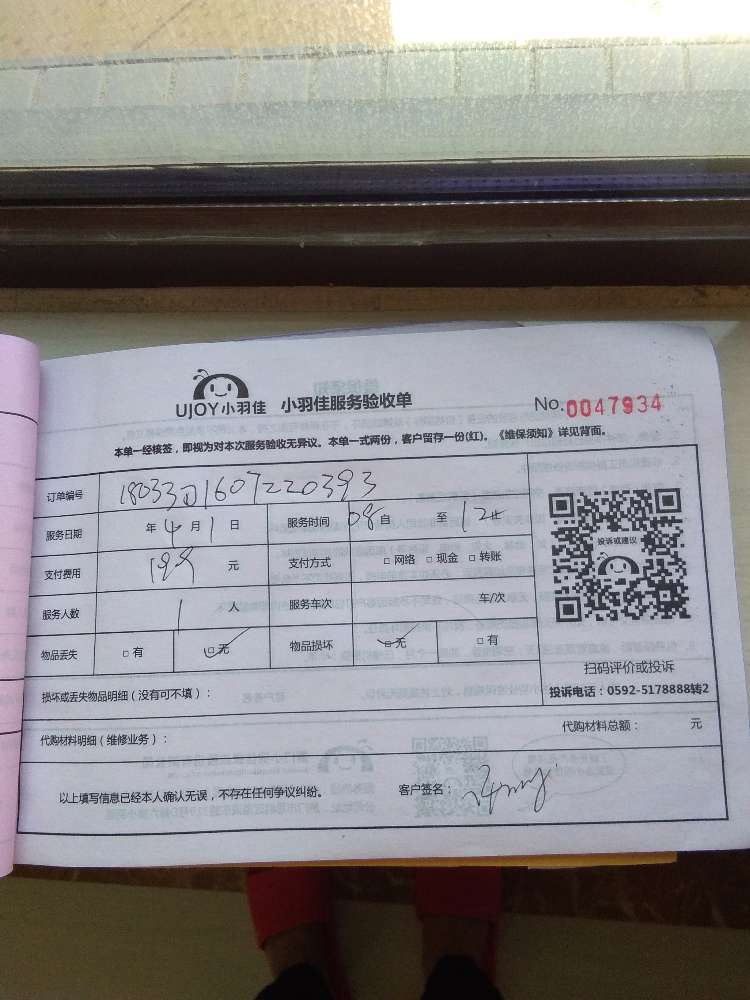 UJOY小羽佳 小羽佳服务验收单 No.0047934
本单一经核签，即视为对本次服务验收无异议。本单一式两份，客户留存一份(红)。《维保须知》详见背面。
订单编号 1607220393
服务日期 年4月1日 服务时间 08自 至12止
支付费用 元 支付方式 □网络 □现金 □转账
服务人数 1人 服务车次 车/次
物品丢失 □有 □无 物品损坏 □无 □有
投诉或建议
扫码评价或投诉
投诉电话：0592-5178888转2
损坏或丢失物品明细（没有可不填）：
代购材料明细（维修业务）： 代购材料总额： 元
以上填写信息已经本人确认无误，不存在任何争议纠纷。 客户签名：